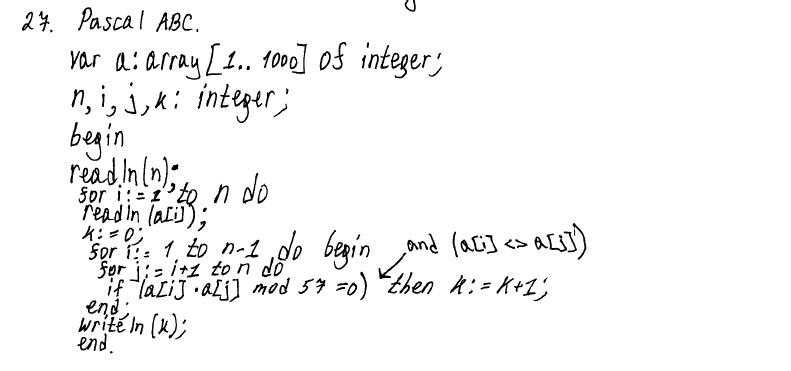 27. Pascal ABC.
var a: array [1.. 1000] of integer;
n, i, j, k: integer;
begin
readln(n);
for i:= 1 to n do
readln (a[i]);
k:= 0;
for i:= 1 to n-1 do begin
and (a[i] <> a[j])
for j:= i+1 to n do
if (a[i] · a[j] mod 57 =0) then k:= k+1;
end;
writeln (k);
end.